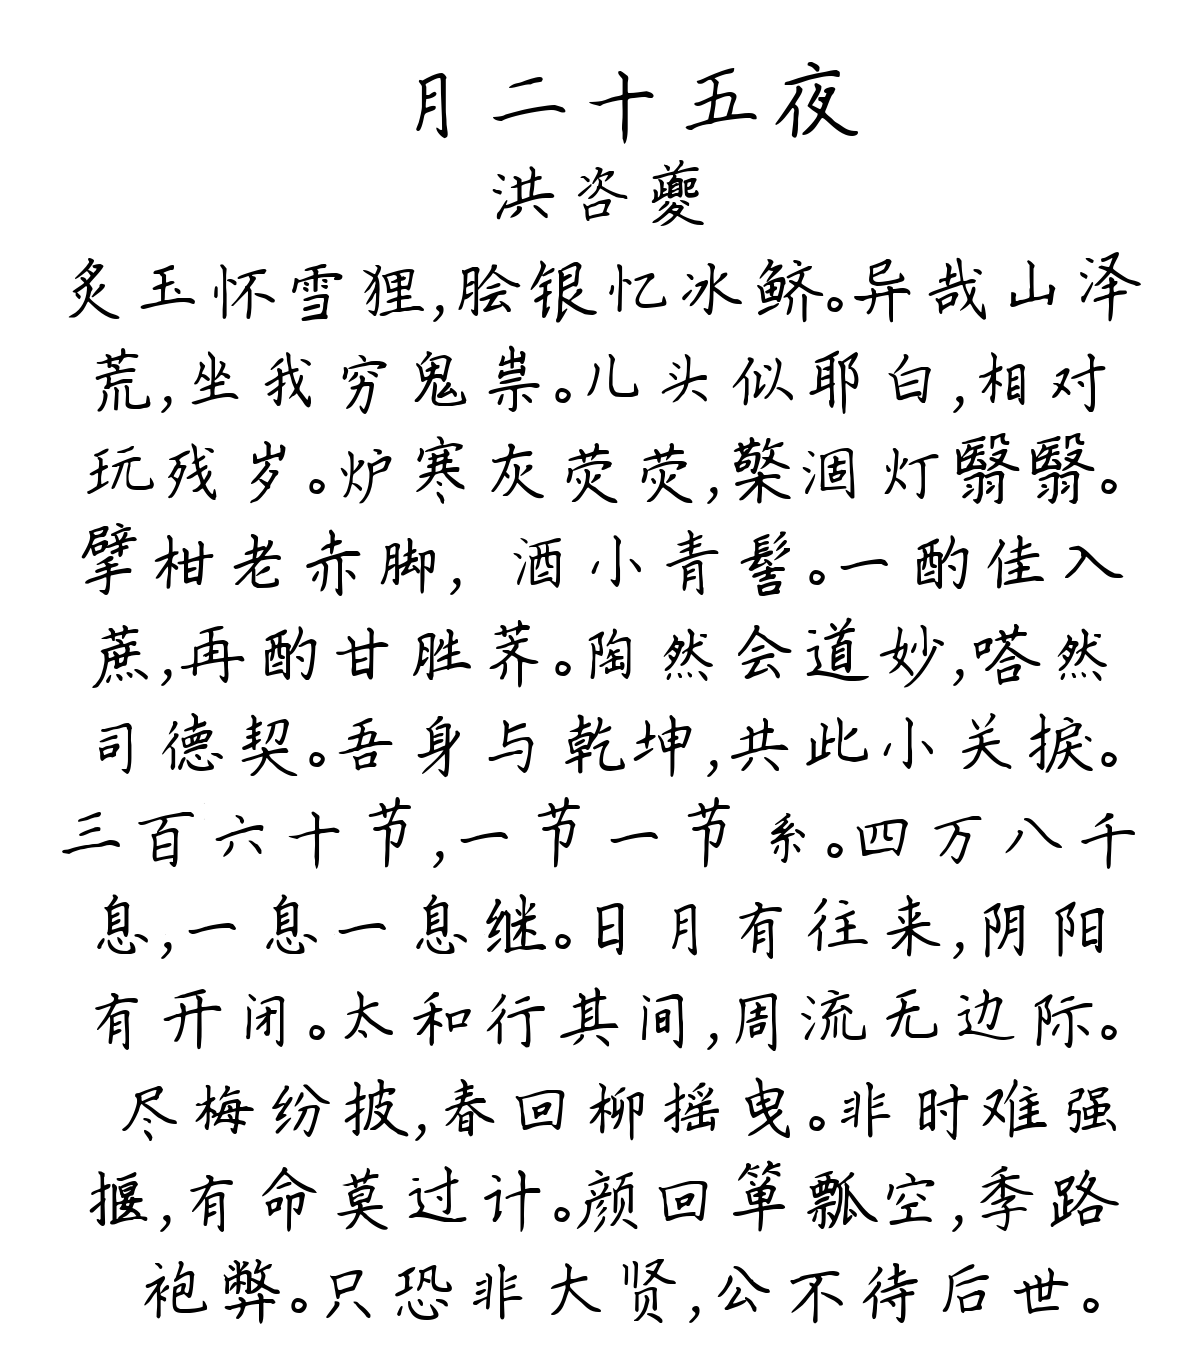 月二十五夜
洪咨夔
炙玉怀雪狸,脍银忆冰鲚。异哉山泽
荒,坐我穷鬼祟。儿头似耶白,相对
玩残岁。炉寒灰荧荧,檠涸灯翳翳。
擘柑老赤脚,酒小青髻。一酌佳入
蔗,再酌甘胜荠。陶然会道妙,嗒然
司德契。吾身与乾坤,共此小关捩。
三百六十节,一节一节系。四万八千
息,一息一息继。日月有往来,阴阳
有开闭。太和行其间,周流无边际。
尽梅纷披,春回柳摇曳。非时难强
揠,有命莫过计。颜回箪瓢空,季路
袍弊。只恐非大贤,公不待后世。